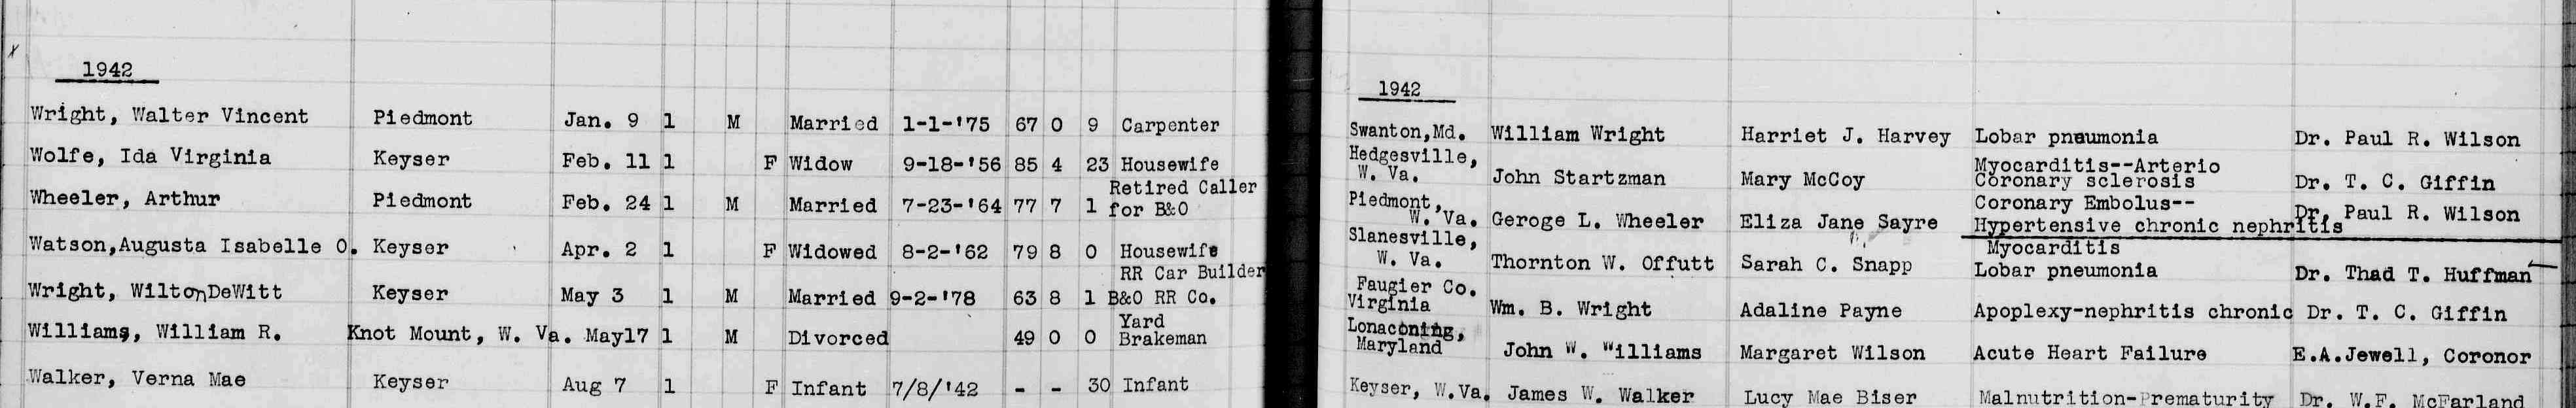 1942
1942
Wright, Walter Vincent Piedmont Jan. 9 1 M Married 1-1-'75 67 0 9 Carpenter Swanton,Md. William Wright Harriet J. Harvey Lobar pneumonia Dr. Paul R. Wilson
Wolfe, Ida Virginia Keyser Feb. 11 1 F Widow 9-18-'56 85 4 23 Housewife Hedgesville, W. Va. John Startzman Mary McCoy Myocarditis--Arterio Coronary sclerosis Dr. T. C. Giffin
Wheeler, Arthur Piedmont Feb. 24 1 M Married 7-23-'64 77 7 1 Retired Caller for B&O Piedmont, W. Va. Geroge L. Wheeler Eliza Jane Sayre Coronary Embolus-- Hypertensive chronic nephritis Dr. Paul R. Wilson
Watson,Augusta Isabelle O. Keyser Apr. 2 1 F Widowed 8-2-'62 79 8 0 Housewife Slanesville, W. Va. Thornton W. Offutt Sarah C. Snapp Myocarditis Lobar pneumonia Dr. Thad T. Huffman
Wright, WiltonDeWitt Keyser May 3 1 M Married 9-2-'78 63 8 1 RR Car Builder B&O RR Co. Faugier Co. Virginia Wm. B. Wright Adaline Payne Apoplexy-nephritis chronic Dr. T. C. Giffin
Williams, William R. Knot Mount, W. Va. May17 1 M Divorced 49 0 0 Yard Brakeman Lonaconing, Maryland John W. Williams Margaret Wilson Acute Heart Failure E.A.Jewell, Coronor
Walker, Verna Mae Keyser Aug 7 1 F Infant 7/8/'42 - - 30 Infant Keyser, W.Va. James W. Walker Lucy Mae Biser Malnutrition-Prematurity Dr. W.F. McFarland